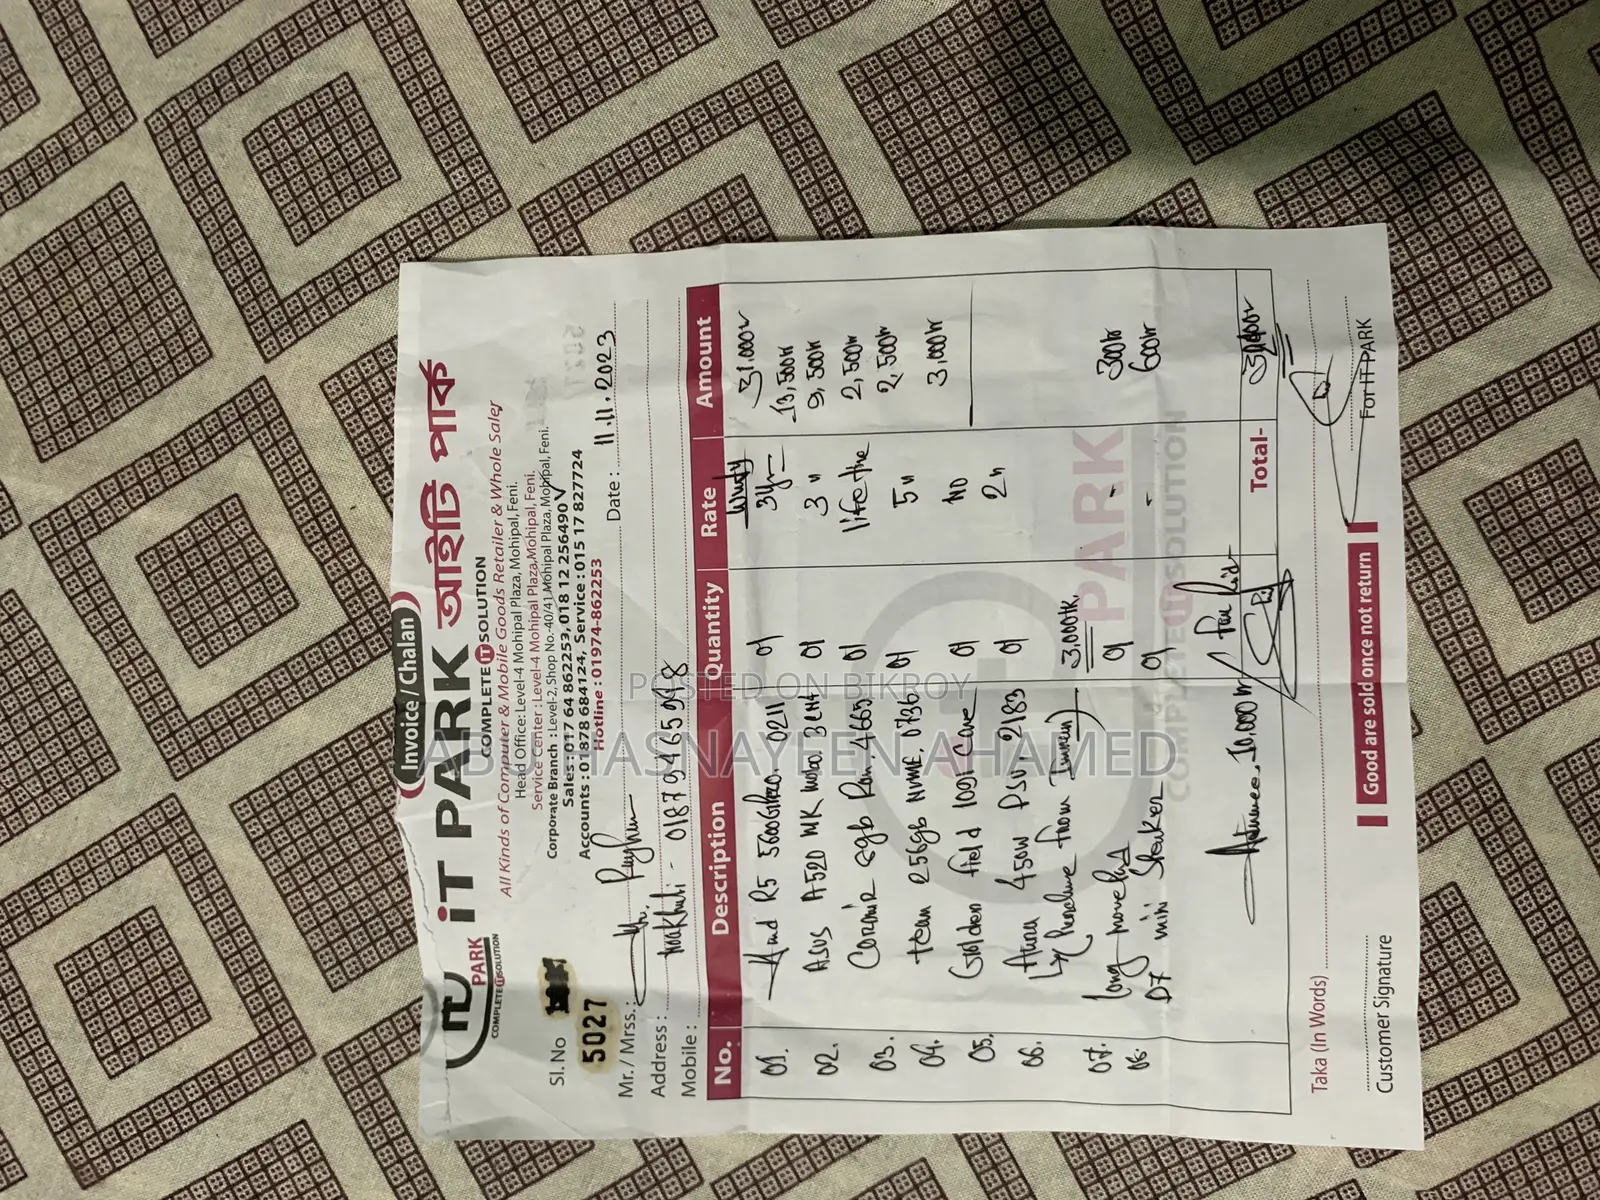 Invoice / Chalan
PARK
COMPLETE IT SOLUTION
iT PARK আইটি পার্ক
COMPLETE IT SOLUTION
All Kinds of Computer & Mobile Goods Retailer & Whole Saler
Head Office: Level-4 Mohipal Plaza, Mohipal, Feni.
Service Center : Level-4 Mohipal Plaza,Mohipal, Feni.
Corporate Branch : Level-2, Shop No.-40/41,Mohipal Plaza, Mohipal, Feni.
Sales : 017 64 862253, 018 12 256490
Accounts : 01878 684124, Service : 015 17 827724
Hotline : 01974-862253
Sl. No
5027
Date : 11.11.2023
Mr. / Mrss. :
Address : Noakhali -
Mobile :
No. Description Quantity Rate Amount
31,000
01. Amd R5 5600G 0211 01 3yr 13,500
02. ASUS A520 MK 01 3 " 9,500
03. Corsair 8gb Ram. 4665 01 life time 2,500
04. team 256gb NVME. 0736 01 5 " 2,500
05. Golden field 1001 Case 01 NO 3,000
06. 450w PSU, 2183 01 2 "
3,000
07. Long 01 - 300
08. D7 mini Speaker 01 - 600
Advance 10,000
Total-
Taka (In Words)
Customer Signature
Good are sold once not return
For IT PARK
PARK
COMPLETE IT SOLUTION
POSTED ON BIKROY
ABUL HASNAYEEN AHAMED